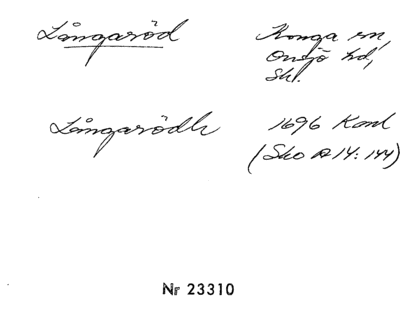 Långaröd Konga sn,
Onsjö hd,
Sk.
Långarödh 1696 Konl
(Sko A 14: 144)
Nr 23310